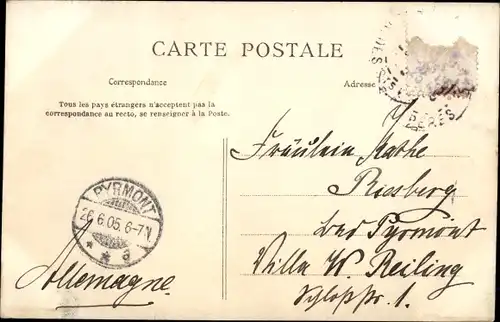 CARTE POSTALE
Correspondance
Adresse
Tous les pays étrangers n'acceptent pas la
correspondance au recto, se renseigner à la Poste.
PYRMONT
26.6.05.6-7N
* * a
Allemagne
Fräulein Käthe
Riesberg
bad Pyrmont
Villa W. Reiling
Schloßstr. 1.